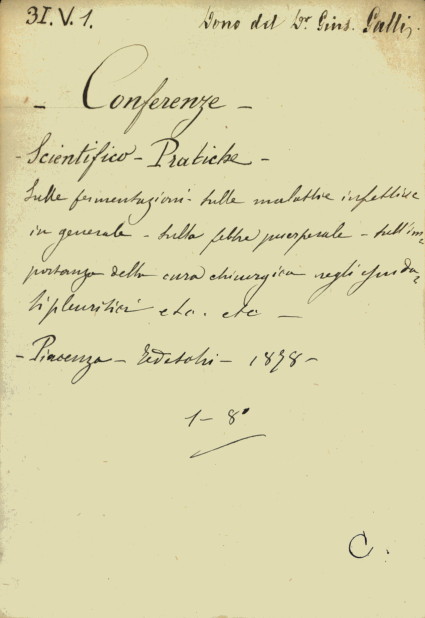 3I.V.1. Dono del Dr Gius. Galli
- Conferenze -
- Scientifico - Pratiche -
Sulle fermentazioni - sulle malattie infettive
in generale - sulla febbre puerperale - sull'im=
portanza della cura chirurgica negli essuda=
ti pleuritici etc. etc -
- Piacenza - Tedeschi - 1878 -
1 - 8°
C.